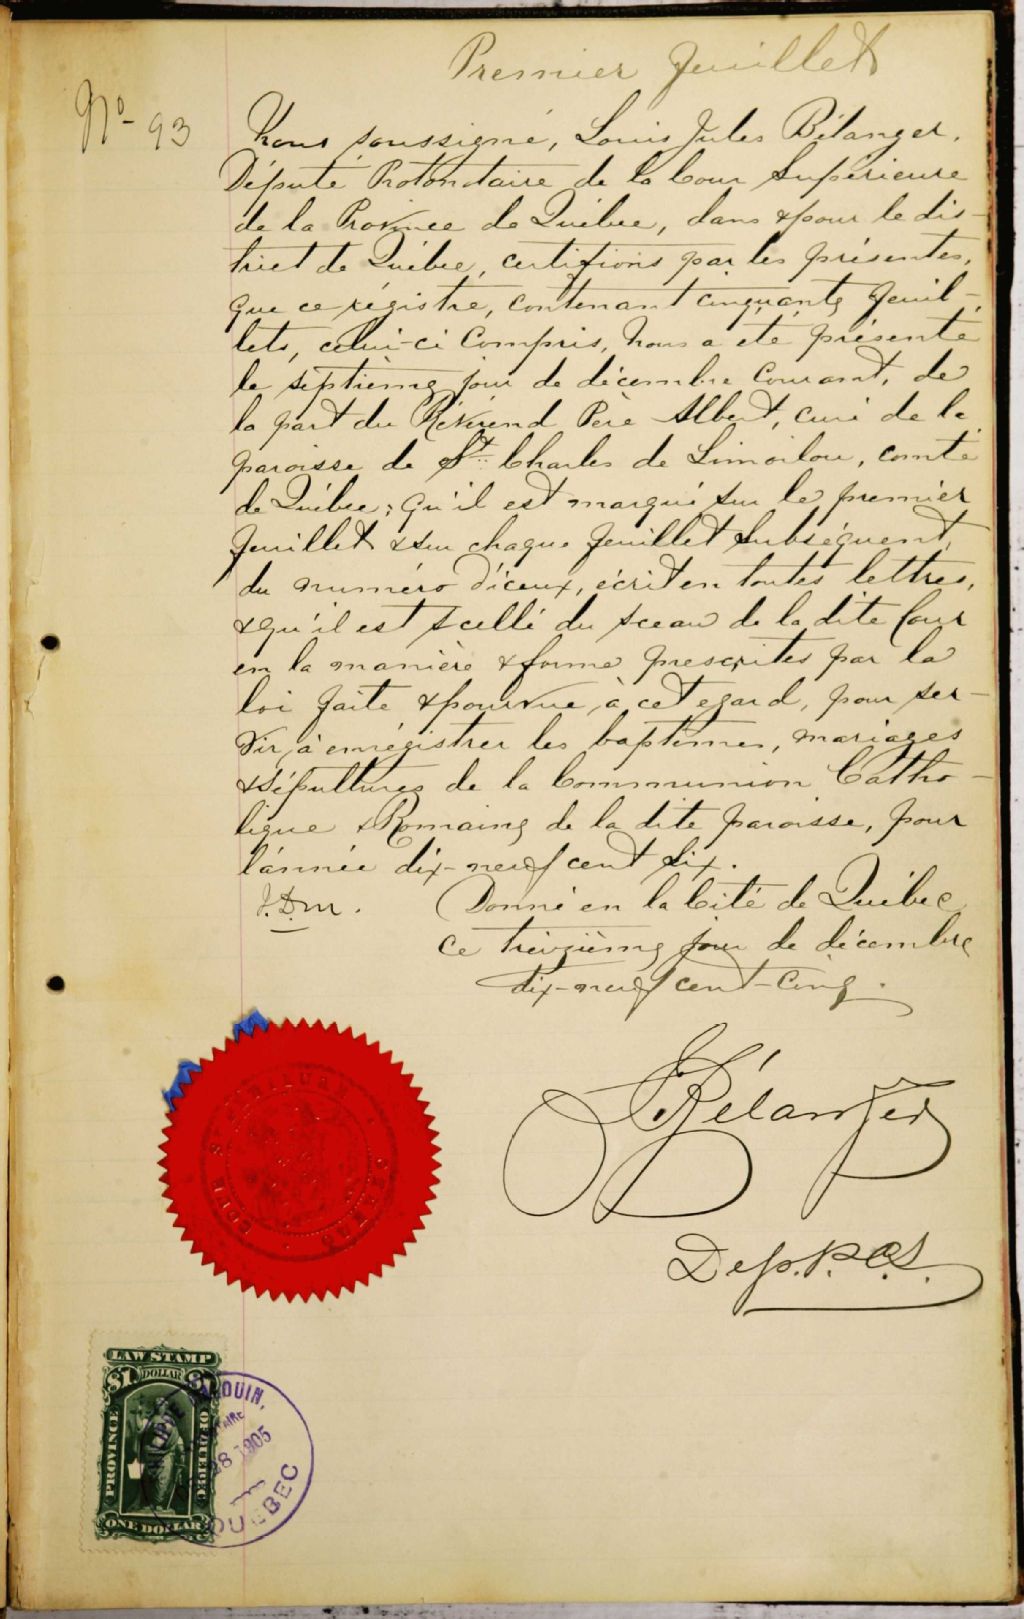 Premier feuillet
No 93
Nous soussigné, Louis Jules Bélanger,
Député Protonotaire de la Cour Supérieure
de la Province de Québec, dans & pour le dis-
trict de Québec, certifions par les présentes,
que ce régistre, contenant cinquante feuil-
lets, celui-ci compris, nous a été présenté
le septième jour de décembre courant, de
la part du Révérend Père Albert, curé de la
paroisse de St. Charles de Limoilou, comté
de Québec; qu'il est marqué sur le premier
feuillet & sur chaque feuillet subséquent,
du numéro d'iceux, écrit en toutes lettres,
& qu'il est scellé du sceau de la dite Cour
en la manière & forme prescrites par la
loi faite & pourvue à cet egard, pour ser-
vir à enrégistrer les baptêmes, mariages
& sépultures de la Communion Catho-
lique & Romaine de la dite paroisse, pour
l'année dix-neuf cent six.
J.D.M.
Donné en la Cité de Québec
ce treizième jour de décembre
dix-neuf cent-cinq.
Bélanger
Dep. P.C.S.
COUR SUPÉRIEURE
QUÉBEC
LAW STAMP
$1 DOLLAR $1
PROVINCE
DE QUEBEC
ONE DOLLAR
28 1905
QUEBEC